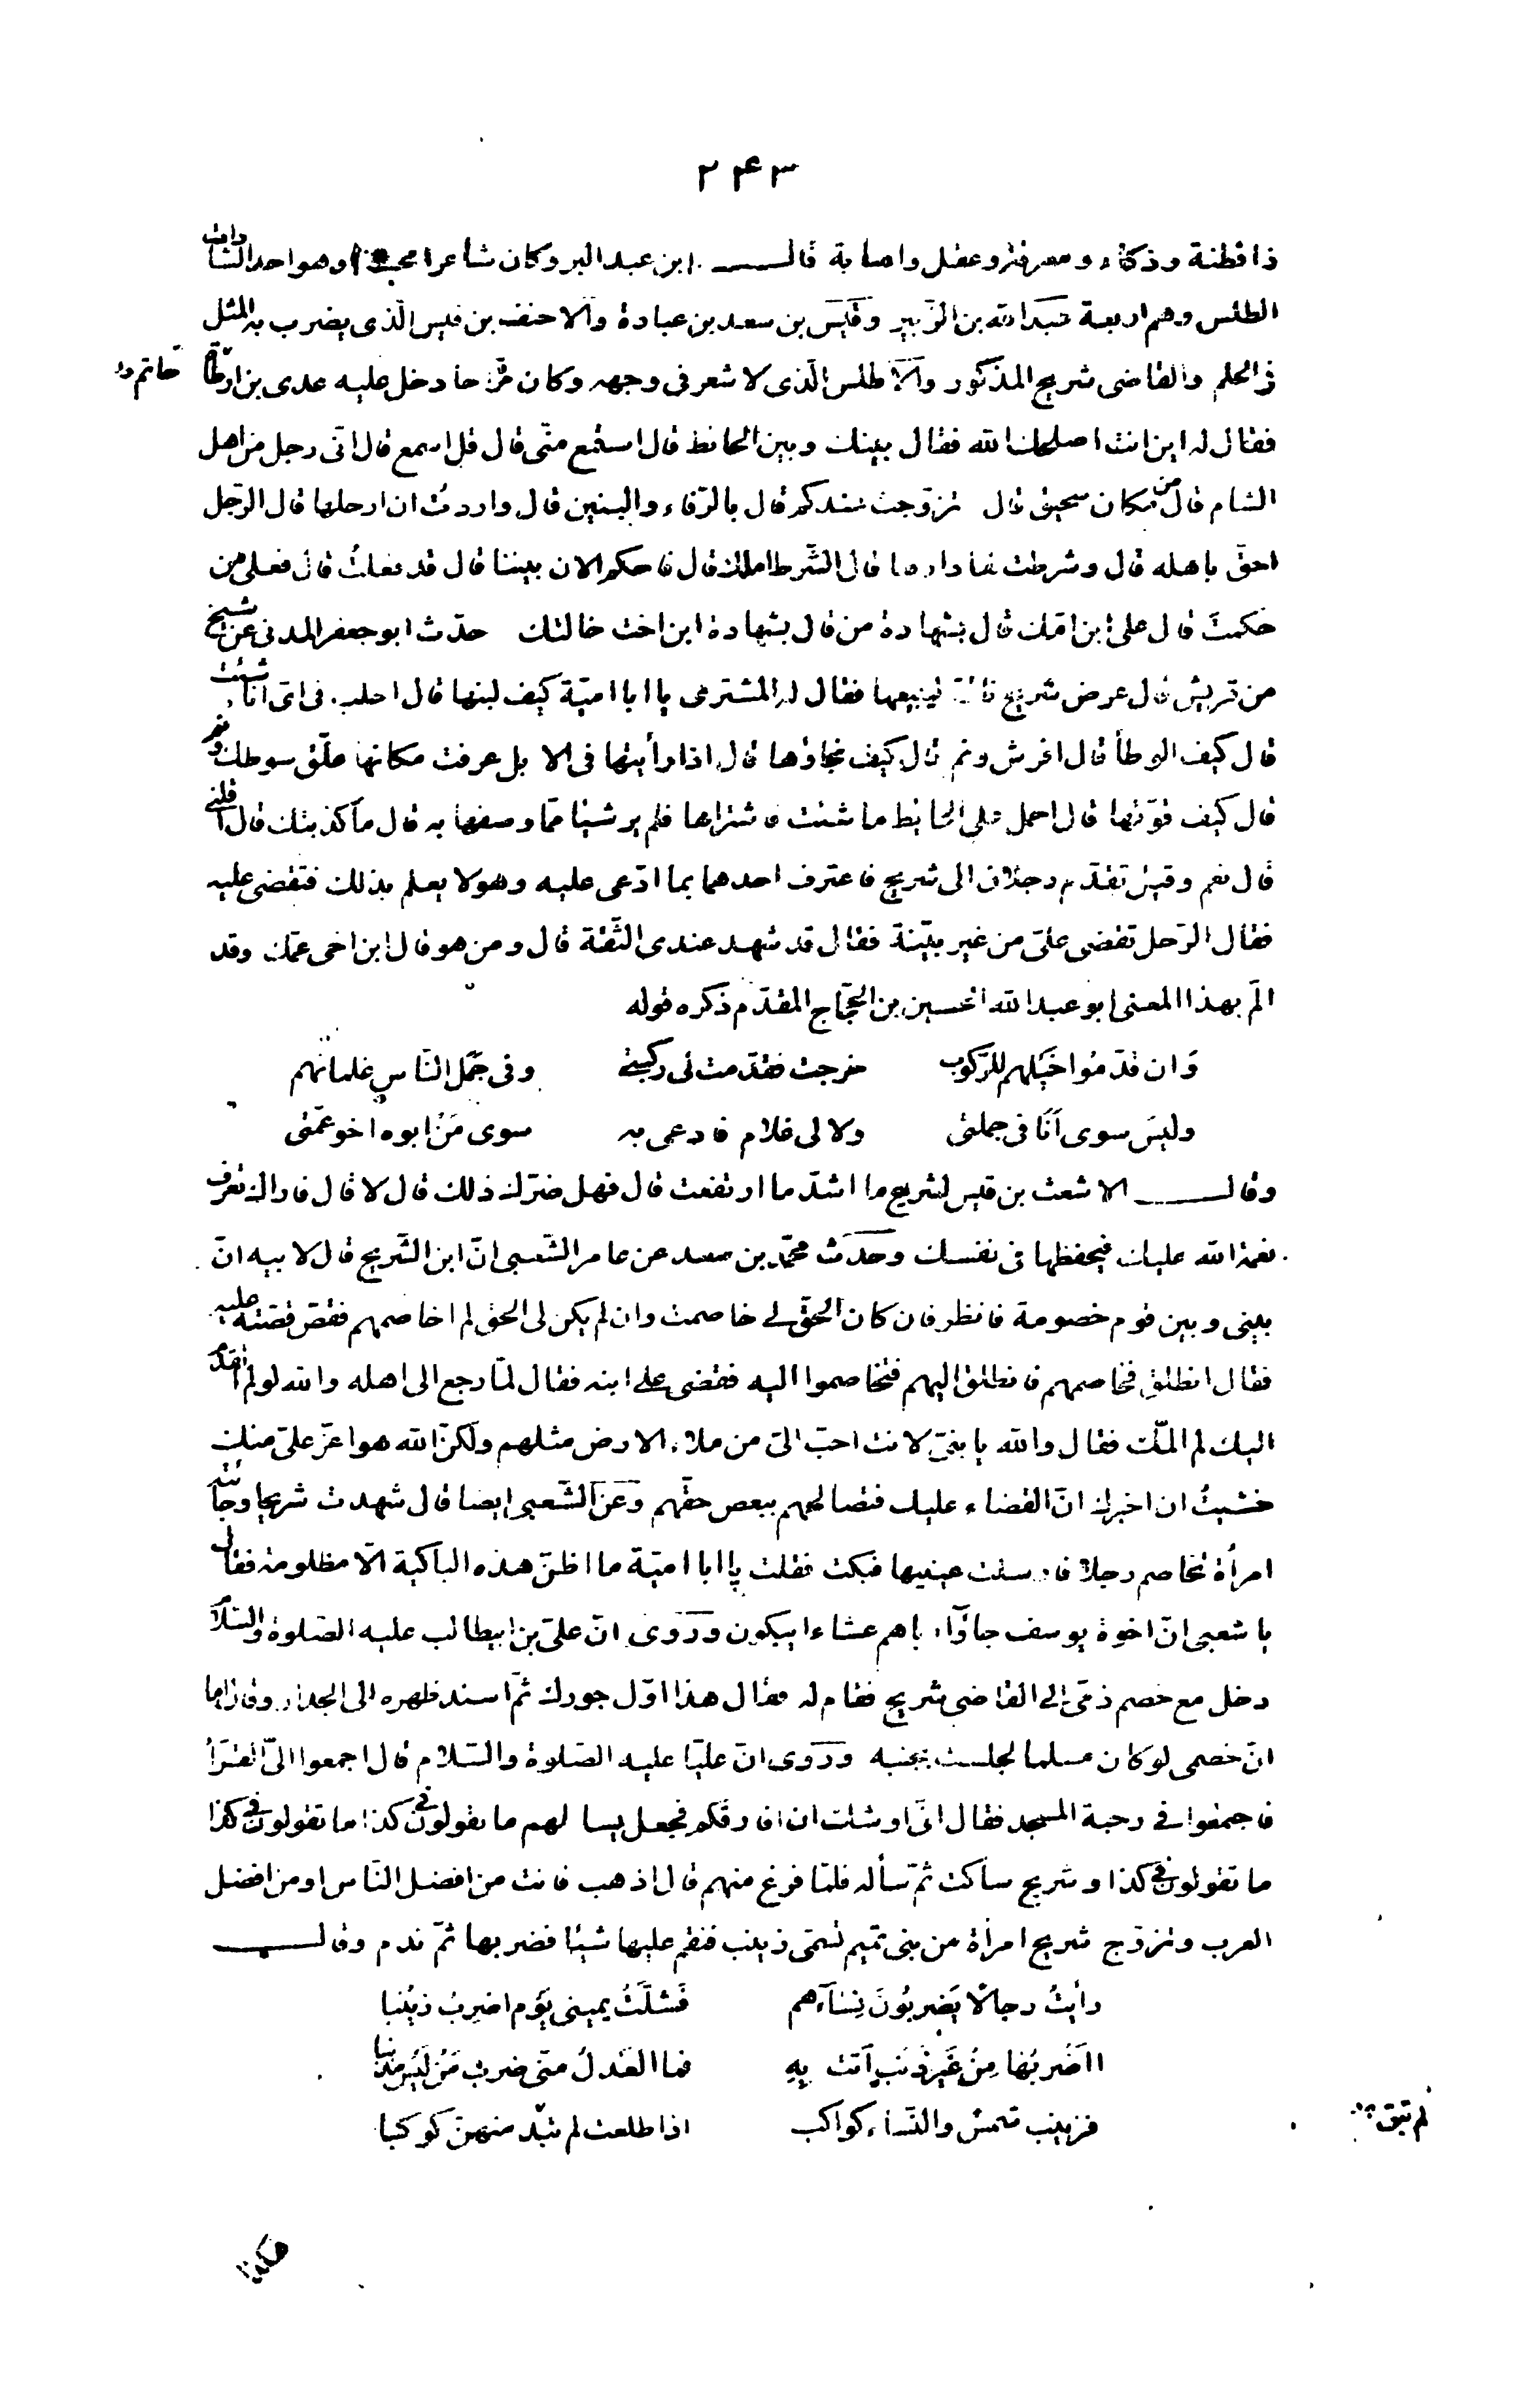 ٢٤٣
ذا فطنة وذكاء ومعرفة وعقل واصابة قال ابن عبد البر وكان شاعرا محسنا وهو احد السادات
الطلس وهم اربعة عبد الله بن الزبير وقَيَس بن سعد بن عبادة والاحنف بن قيس الّذى يضرب به المثل
فى الحلم والقاضى شريح المذكور والاطلس الّذى لا شعر فى وجهه وكان مزّاحا دخل عليه عدى بن ارطاة
حاتم
فقال له اين انت اصلحك الله فقال بينك وبين الحائط قال استمع منّى قال قل اسمع قال انّى رجل من اهل
الشام قال من مكان سحيق قال تزوّجت عندكم قال بالرّفاء والبنين قال واردتُ ان ارحلها قال الرّجل
احقّ باهله قال وشرطت لها دارها قال الشّرط املك قال فاحكم الان بيننا قال قد فعلتُ قال فعلى من
حكمتَ قال على ابن امّك قال بشهادة من قال بشهادة ابن اخت خالتك حدّث ابو جعفر المدنى عن شيخ
من قريش قال عرض شريح ناقة ليبيعها فقال له المشترى يا ابا اميّة كيف لبنها قال احلب فى اىّ اناء شئت
قال كيف الوطأ قال افرش ونم قال كيف نجاؤها قال اذا رأيتها فى الابل عرفت مكانها علّق سوطك ونم
قال كيف قوّتها قال احمل على الحائط ما شئت فاشتراها فلم ير شيئا ممّا وصفها به قال ما كذبتك قال اقلنى
قال نعم وقيل تقدّم رجلان الى شريح فاعترف احدهما بما ادّعى عليه وهو لا يعلم بذلك فقضى عليه
فقال الرّجل تقضى علىّ من غير بيّنة فقال قد شهد عندى الثّقة قال ومن هو قال ابن اخى عمّك وقد
المّ بهذا المعنى ابو عبد الله الحسين بن الحجّاج المقدّم ذكره قوله
وَان قدّمُوا خَيلهم للرّكوب خرجت فقدّمت لى ركبتى وفى جَمَل النّاسِ غلمانهم
وليسَ سوى اَنَا فى جملتى ولا لى غلام فادعى به سوى مَنْ ابوه اخو عمّتى
وقال الاشعث بن قيس لشريح ما اشدّ ما ارتفعت قال فهل ضرّك ذلك قال لا قال فاراك تعرف
نعمة الله عليك فتحفظها فى نفسك وحَدّث محمّد بن سعد عن عامر الشّعبى انّ ابن الشّريح قال لابيه انّ
بينى وبين قوم خصومة فانظر فان كان الحقّ لى خاصمت وان لم يكن لى الحق لم اخاصمهم فقصّ قصّته عليه
فقال انطلق فخاصمهم فانطلق اليهم فتخاصموا اليه فقضى على ابنه فقال لمّا رجع الى اهله والله لو لم اتقدّم
اليك لم المك فقال والله يا بنىّ لانت احبّ الىّ من ملاء الارض مثلهم ولكنّ الله هو اعزّ علىّ منك
خشيتُ ان اخبرك انّ القضاء عليك فتصالحهم ببعض حقّهم وعَن الشّعبى ايضا قال شهدت شريحا وجائته
امرأة تخاصم رجلا فارسلت عينيها فبكت فقلت يا ابا اميّة ما اظنّ هذه الباكية الّا مظلومة فقال
يا شعبى انّ اخوة يوسف جاؤا اباهم عشاء يبكون ورَوى انّ علىّ بن ابيطالب عليه الصّلوة والسّلام
دخل مع خصم ذمّى الى القاضى شريح فقام له فقال هذا اوّل جورك ثمّ اسند ظهره الى الجدار وقال اما
انّ خصمى لو كان مسلما لجلست بجنبه ورَوى انّ عليّا عليه الصّلاوة والسّلام قال اجمعوا الىّ القرّاء
فاجمعوا فى رحبة المسجد فقال انّى اوشكت ان افارقكم فجعل يسالهم ما تقولون فى كذا ما تقولون فى كذا
ما تقولون فى كذا وشريح ساكت ثمّ سأله فلمّا فرغ منهم قال اذهب فانت من افضل النّاس او من افضل
العرب وتزوّج شريح امرأة من بنى تميم تسمّى زينب فنقم عليها شيئا فضربها ثمّ ندم وقال
رأيتُ رجالًا يَضربُونَ نِسَاءَهم فَشلّتُ يمينى يَوم اضرِبُ زينبا
ااَضربُهَا مِنْ غَيرِ ذَنبٍ اَتت بِهِ فما العَدلُ منّى ضرب مَنْ لَيسَ مذنبا
فزينب شمسٌ والنّساء كواكب اذا طلعت لم تبد منهنّ كوكبا
لم تبق
هكذا